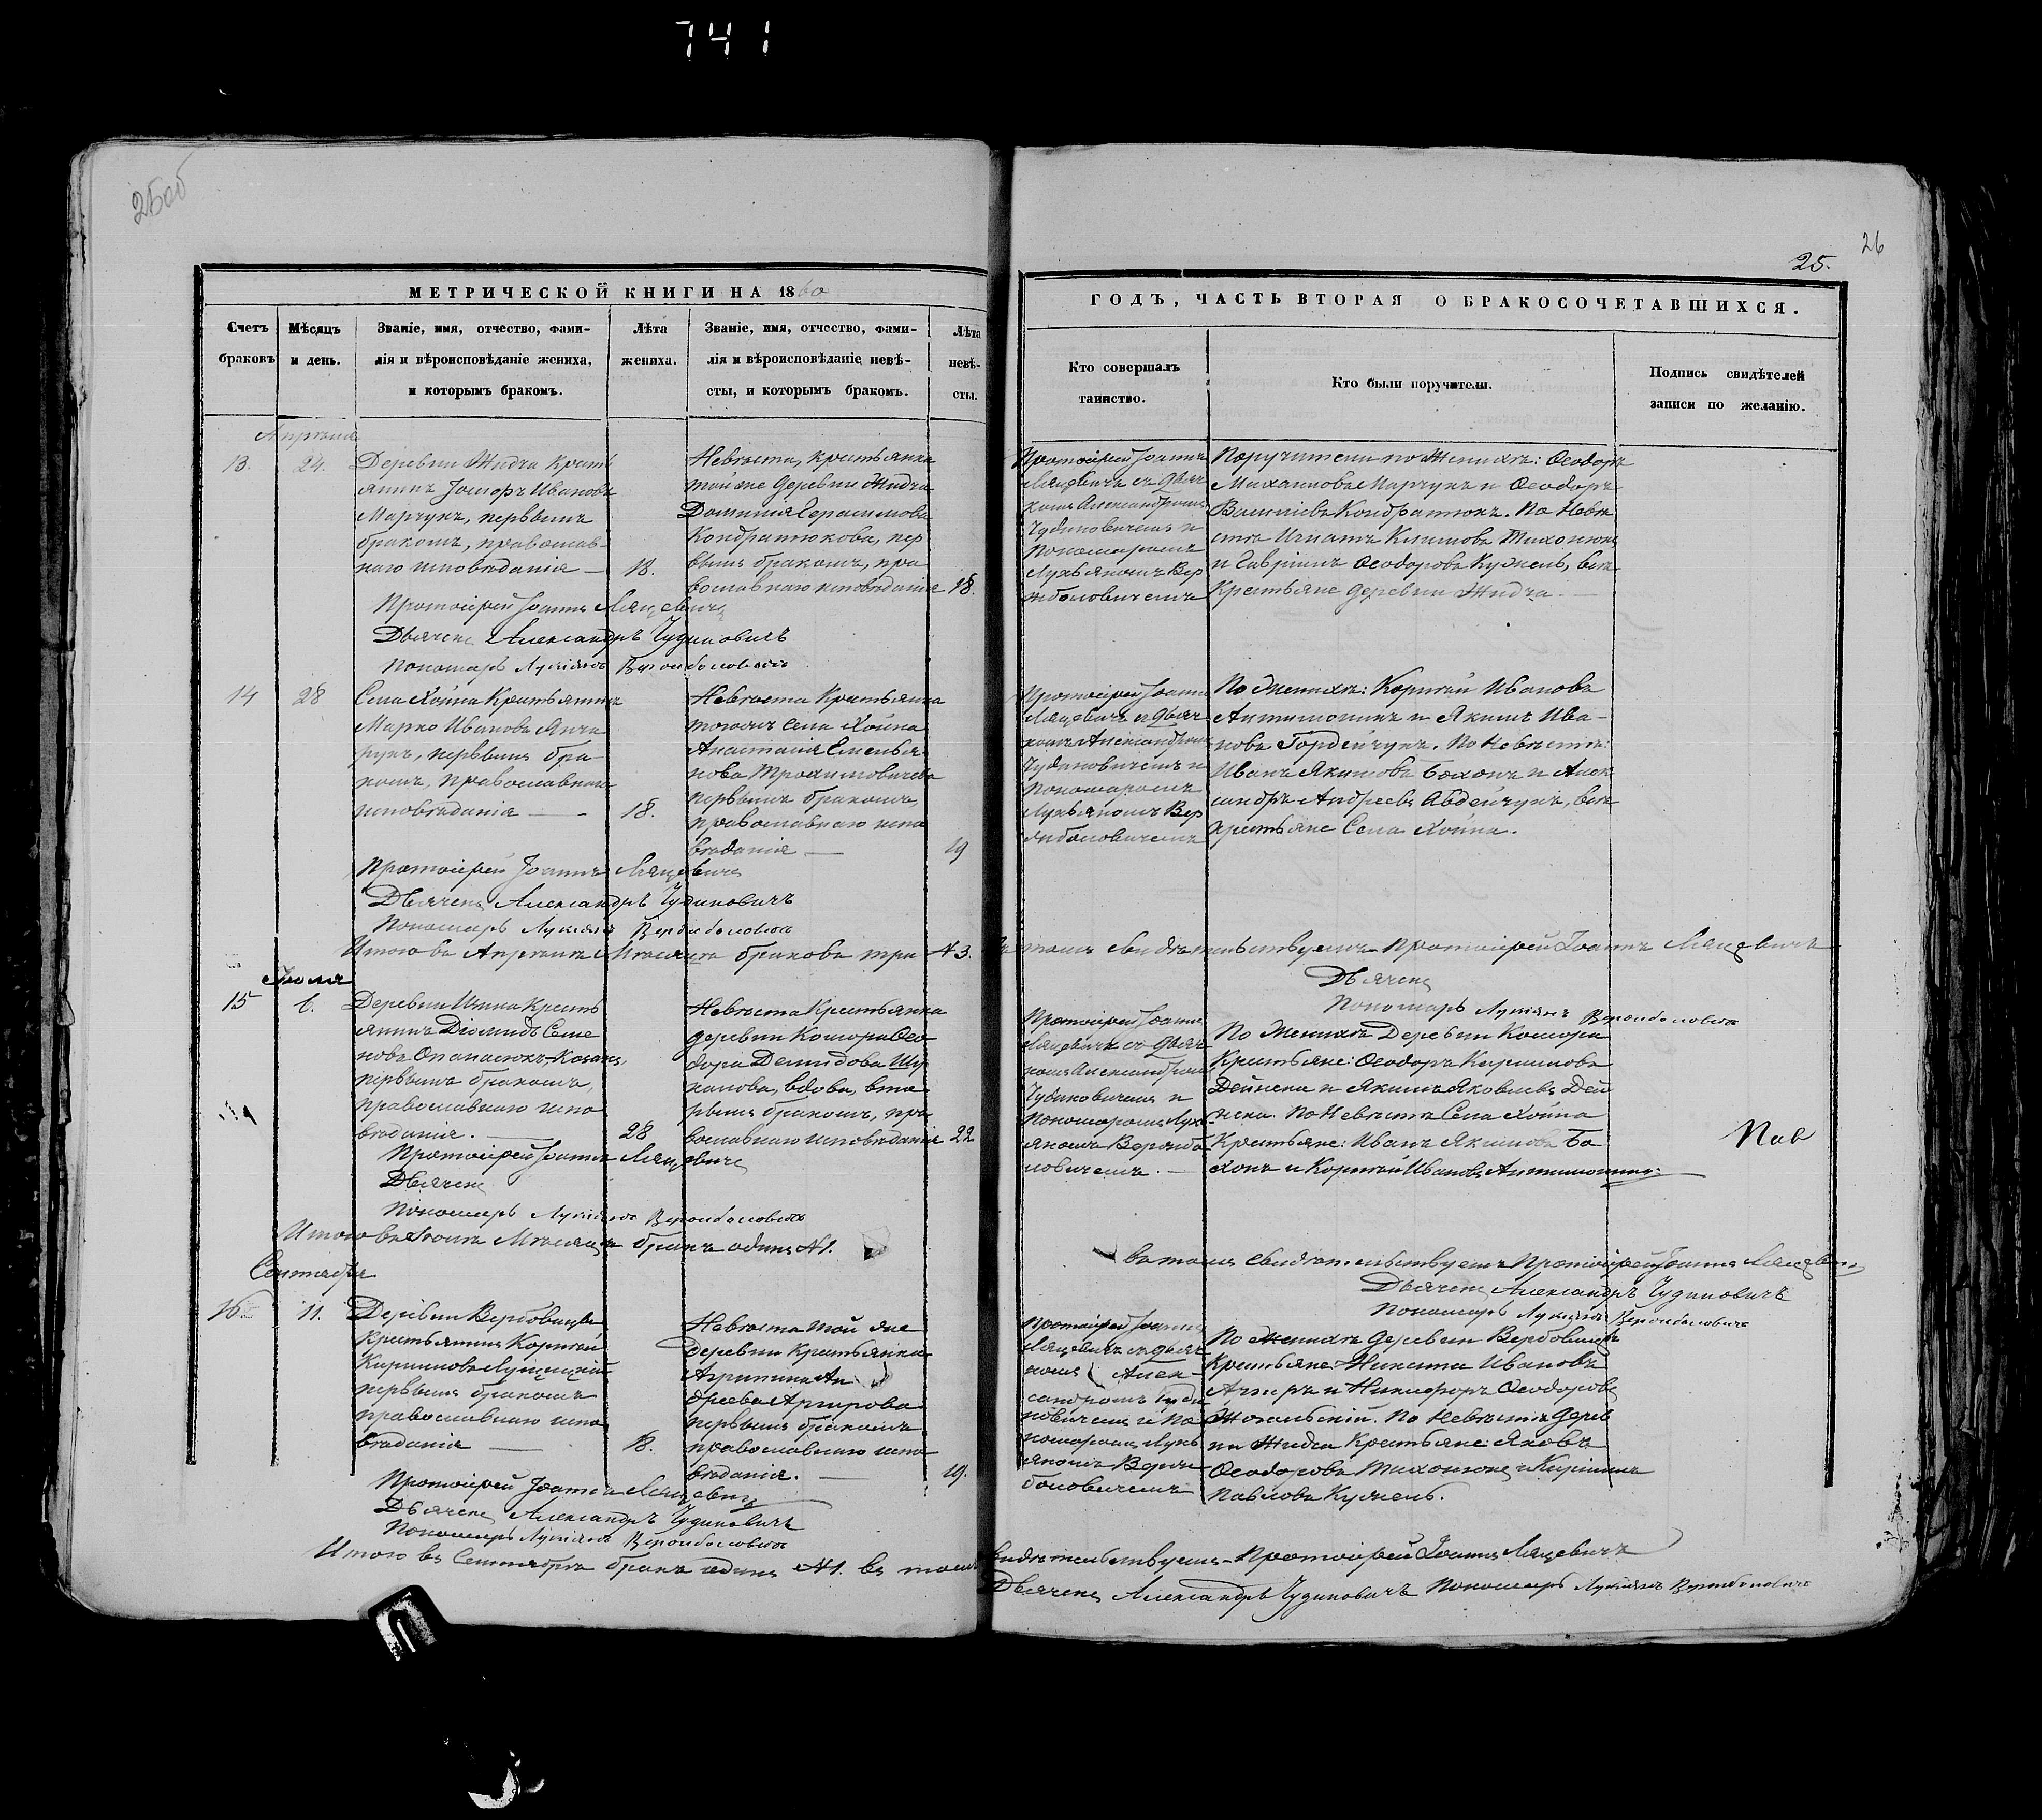 741
25об
26
25.
МЕТРИЧЕСКОЙ КНИГИ НА 1860
ГОДЪ, ЧАСТЬ ВТОРАЯ О БРАКОСОЧЕТАВШИХСЯ.
Счетъ браковъ
Мѣсяцъ и день.
Званіе, имя, отчество, фами-
лія и вѣроисповѣданіе жениха,
и которымъ бракомъ.
Лѣта жениха.
Званіе, имя, отчество, фами-
лія и вѣроисповѣданіе невѣ-
сты, и которымъ бракомъ.
Лѣта невѣ-
сты.
Кто совершалъ
таинство.
Кто были поручители.
Подпись свидѣтелей
записи по желанію.
Апрѣля
13.
24.
Деревни Жидча Кресть
янинъ Іосифъ Ивановъ
Марчукъ, первымъ
бракомъ, православ-
наго исповѣданія
18.
Невѣста, крестьянка
той же деревни Жидча
Домникія Герасимова
Кондратюкова, пер
вымъ бракомъ, пра
вославнаго исповѣданія
18.
Протоіерей Іоаннъ
Ляцевичъ съ дьяч
комъ Александромъ
Чудиновичемъ и
Пономаремъ
Лукьяномъ Вер
жболовичемъ
Поручители по Женихѣ: Ѳеодоръ
Михаиловъ Марчукъ и Ѳеодоръ
Васильевъ Кондратюкъ. По Невѣ
стѣ Игнатъ Климовъ Тихонюкъ
и Гавріилъ Ѳеодоровъ Кужель, всѣ
Крестьяне деревни Жидча.
Протоіерей Іоаннъ Ляцевичъ
Дьячекъ Александръ Чудиновичъ
Пономарь Лукіянъ
14
28
Села Хойна Крестьянинъ
Марко Ивановъ Янча
рукъ, первымъ бра-
комъ, православнаго
исповѣданія
18.
Невѣста Крестьянка
тогожъ Села Хойна
Анастасія Емелья
нова Трохимовичева
первымъ бракомъ,
православнаго испо
вѣданія
19
Протоіерей Іоаннъ
Ляцевичъ съ дьяч
комъ Александромъ
Чудиновичемъ и
Пономаремъ
Лукьяномъ Вер
жболовичемъ
По Женихѣ: Корнѣй Ивановъ
Антимоникъ и Якимъ Ива-
новъ Гордейчукъ. По Невѣстѣ:
Иванъ Якимовъ Бохонъ и Алек
сандръ Андреевъ Авдейчукъ, всѣ
крестьяне Села Хойна.
Протоіерей Іоаннъ Ляцевичъ
Дьячекъ Александръ Чудиновичъ
Пономарь Лукіянъ
Итого въ Апрѣлѣ Мѣсяцѣ браковъ три №3.
томъ свидѣтельствуемъ Протоіерей Іоаннъ Ляцевичъ
Дьячекъ
Пономарь Лукіянъ
Іюля
15
6.
Деревни Изина Кресть
янинъ Діомидъ Семе
новъ Опанасюкъ-Козакъ,
первымъ бракомъ,
православнаго испо
вѣданія.
28
Невѣста Крестьянка
деревни Кошори Ѳео
дора Демидова
вдова, вто
рымъ бракомъ, пра
вославнаго исповѣданія
22
Протоіерей Іоаннъ
Ляцевичъ съ дьяч
комъ Александромъ
Чудиновичемъ и
Пономаремъ Лук
яномъ Вержбо
ловичемъ.
По Женихѣ Деревни Кошори
Крестьяне: Ѳеодоръ Кириловъ
Дейнека и Якимъ Яковлевъ Дей
нека. По Невѣстѣ Села Хойна
Крестьяне: Иванъ Якимовъ Бо
хонъ и Корнѣй Ивановъ Антимоникъ.
Пав
Протоіерей Іоаннъ Ляцевичъ
Дьячекъ
Пономарь Лукіянъ
Итого въ Іюлѣ Мѣсяцѣ бракъ одинъ №1.
въ томъ свидѣтельствуемъ Протоіерей Іоаннъ Ляцевичъ
Дьячекъ Александръ Чудиновичъ
Пономарь Лукіянъ
Сентября
16.
11.
Деревни Вербовицы
Крестьянинъ Корнѣй
Кириловъ
первымъ бракомъ
православнаго испо
вѣданія
18.
Невѣста той же
деревни Крестьянка
Агрипина Ан
дреева Аргирова
первымъ бракомъ
православнаго испо
вѣданія.
19.
Протоіерей Іоаннъ
Ляцевичъ съ дьяч
комъ Алек-
сандромъ Чуди
новичемъ и По
номаремъ Лукь
яномъ Верж
боловичемъ
По Женихѣ деревни Вербовицы
Крестьяне: Никита Ивановъ
и Никифоръ Ѳеодоровъ
По Невѣстѣ Дерев
ни Жидча Крестьяне: Яковъ
Ѳеодоровъ Тихонюкъ и Кирилъ
Павловъ Кужель.
Протоіерей Іоаннъ Ляцевичъ
Дьячекъ Александръ Чудиновичъ
Пономарь Лукіянъ
Итого въ Сентябрѣ бракъ одинъ №1. въ томъ
свидѣтельствуемъ Протоіерей Іоаннъ Ляцевичъ
Дьячекъ Александръ Чудиновичъ Пономарь Лукіянъ